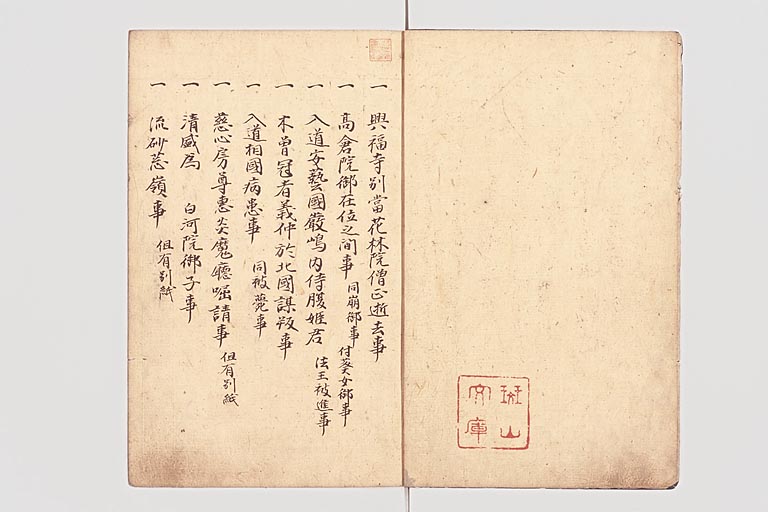 一 興福寺別當花林院僧正逝去事
一 高倉院御在位之間事 同崩御事 付葵女御事
一 入道安藝國嚴嶋内侍腹姫君 法王被進事
一 木曾冠者義仲於北國謀叛事
一 入道相國病患事 同被薨事
一 慈心房尊惠炎魔廳啒請事 但有別紙
一 清盛為 白河院御子事
一 流砂葱嶺事 但有別紙
斑山
文庫